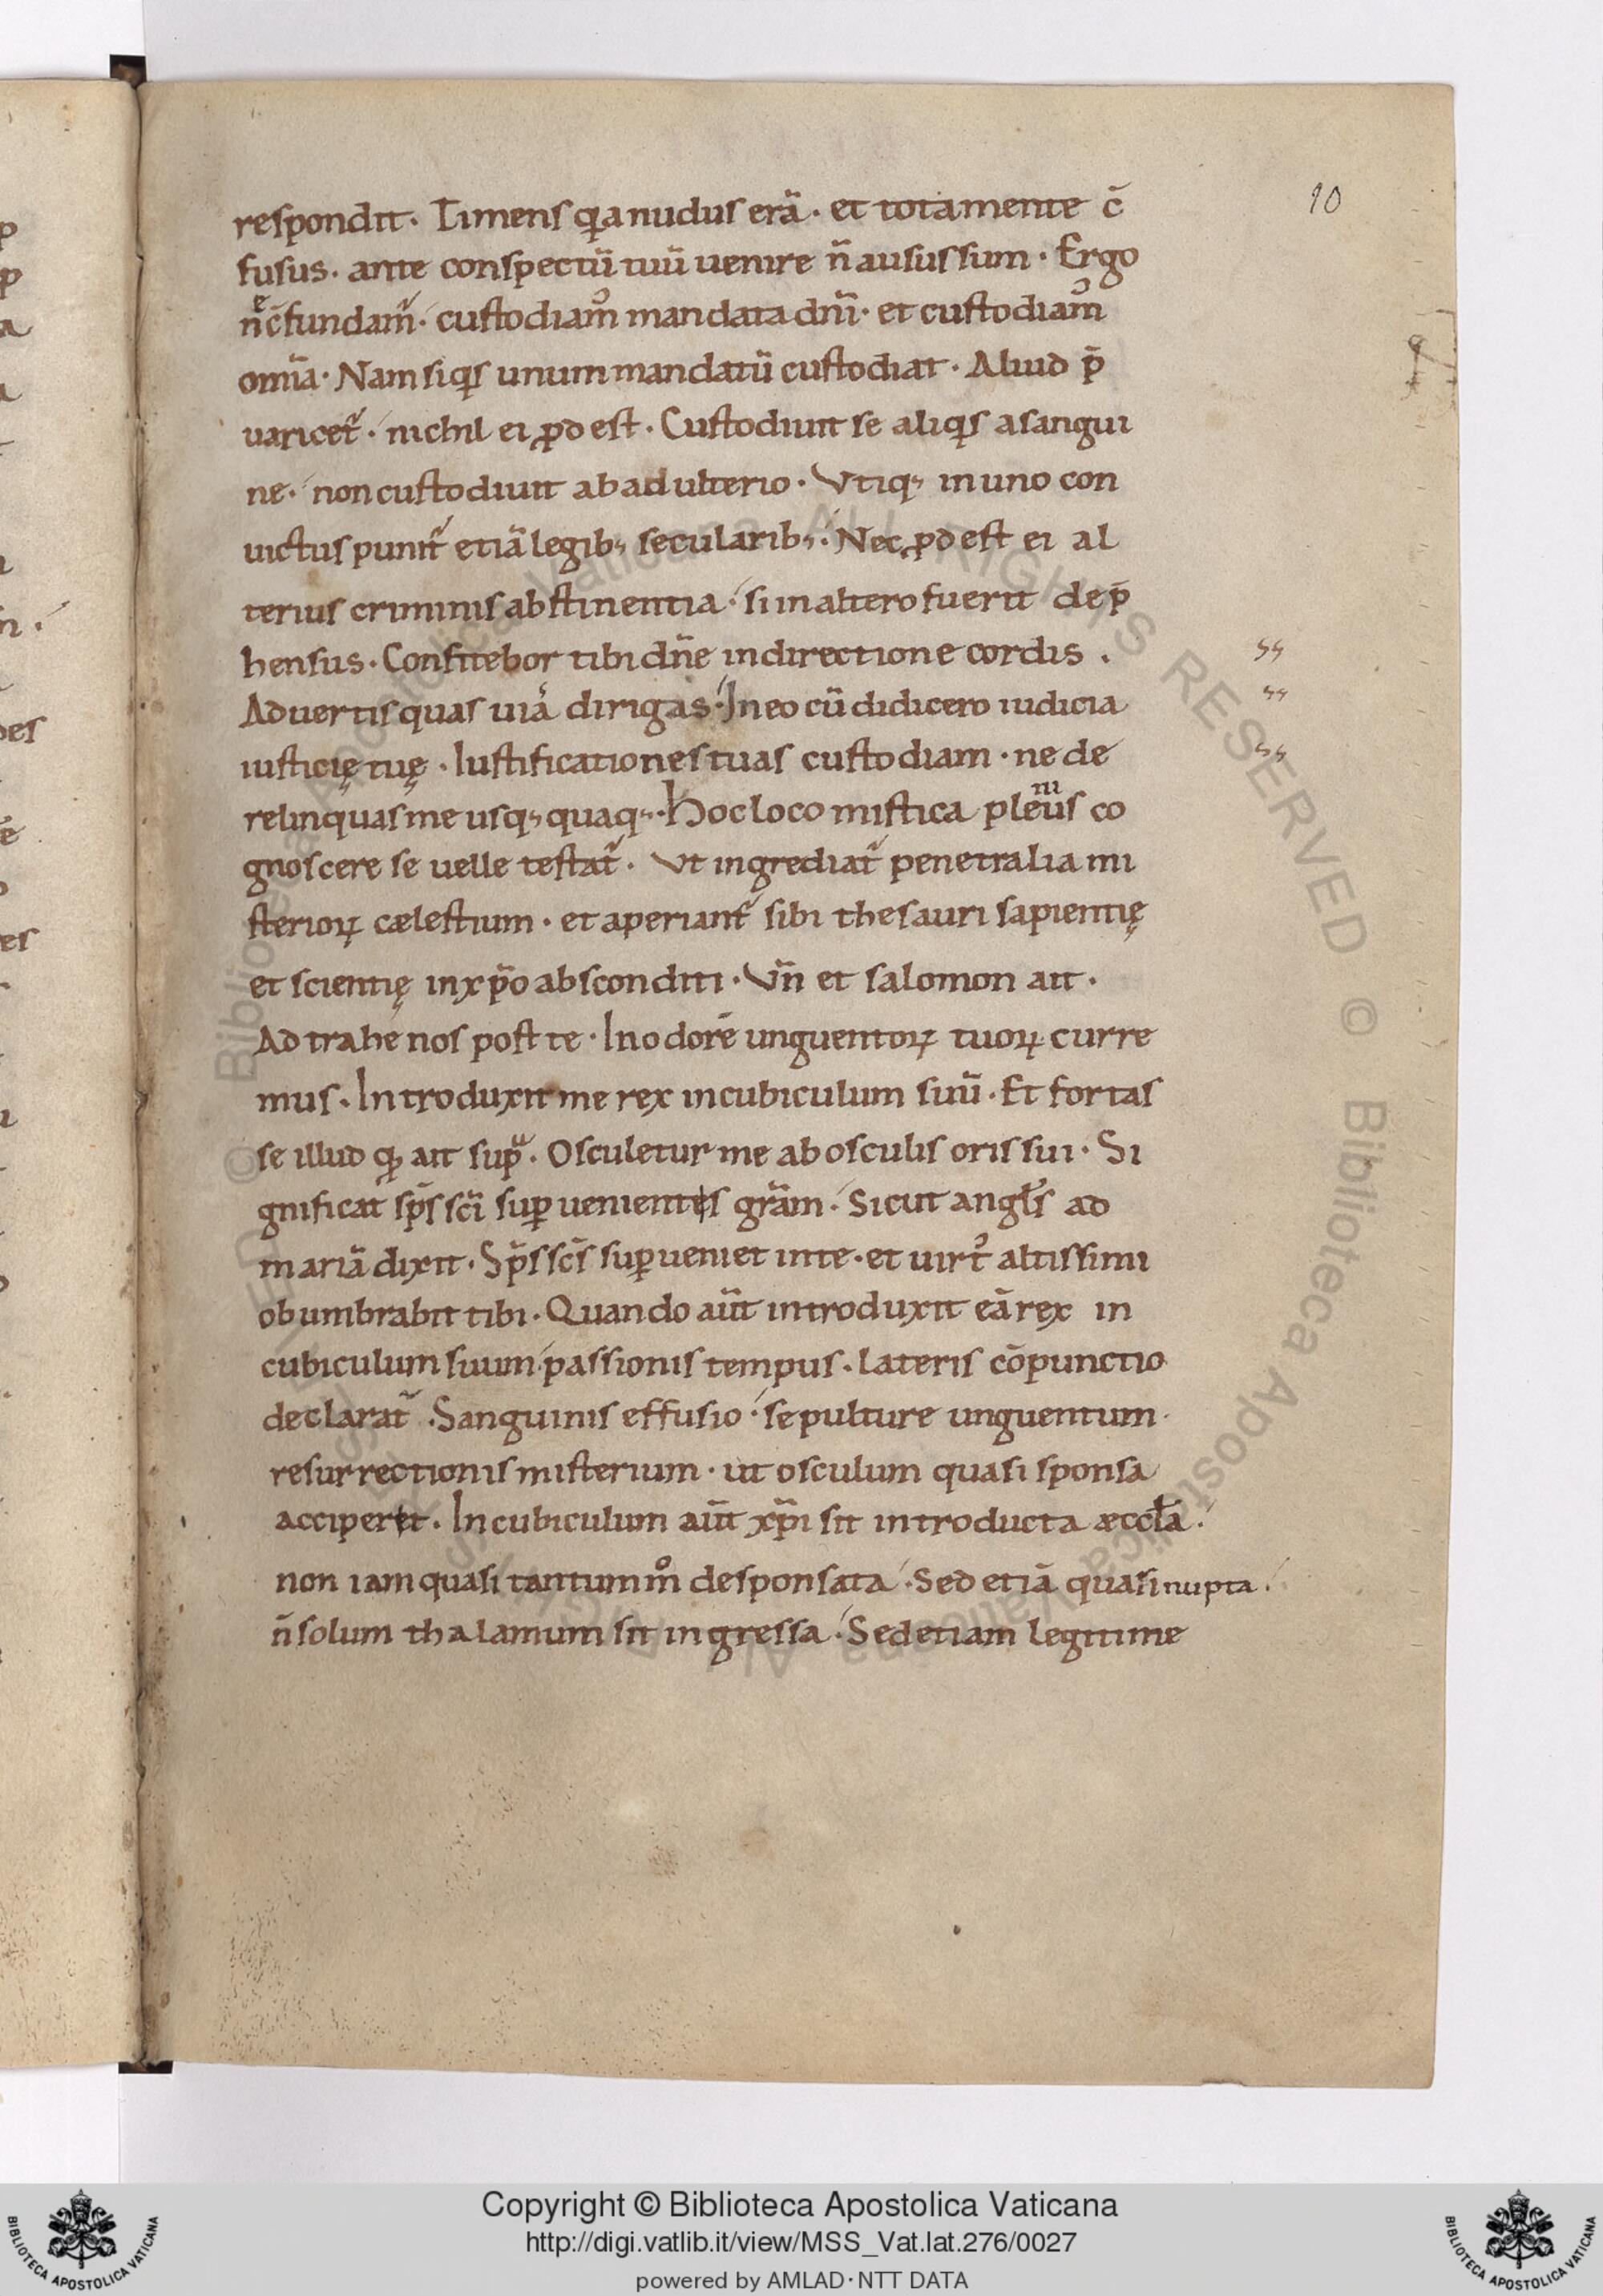 10
respondit. Timens qia nudus erā. et tota mente c̄
fusus. ante conspectū tuū uenire n̄ ausus sum. Ergo
ne c̄fundam̃. custodiam᾽ mandata dn̄i. et custodiam᾽
om̄ia. Nam si qis unum mandatū custodiat. Aliud p̄
uaricet᷑. nichil ei ꝓdest. Custodiuit se aliqis a sangui
ne. non custodiuit ab adulterio. Vtiq; in uno con
uictus punit᷑ etiā legib; secularib;. Nec ꝓdest ei al
terius criminis abstinentia. si in altero fuerit dep̄
hensus. Confitebor tibi dn̄e in directione cordis.
Aduertis quas uiā dirigas. In eo cū didicero iudicia
iusticię tuę. Iustificationes tuas custodiam. ne de
relinquas me usq; quaq;. Hoc loco mistica pleniūs co
gnoscere se uelle testat᷑. Vt ingrediat᷑ penetralia mi
sterioꝝ cælestium. et aperiant᷑ sibi thesauri sapientię
et scientię in xp̄o absconditi. Vn̄ et salomon ait.
Adtrahe nos post te. In odorē unguentoꝝ tuoꝝ curre
mus. Introduxit me rex in cubiculum suū. Et fortas
se illud qđ ait supᵃ. Osculetur me ab osculis oris sui. Si
gnificat sp̄s sc̄i suꝑuenientis gr̄am. Sicut angl̄s ad
mariā dixit. Sp̄s sc̄s suꝑueniet in te. et uirt᾽ altissimi
obumbrabit tibi. Quando aūt introduxit eā rex in
cubiculum suum passionis tempus. Lateris cōpunctio
declarat᷑. Sanguinis effusio. sepulture unguentum.
resurrectionis misterium. ut osculum quasi sponsa
acciperet. In cubiculum aūt xp̄i sit introducta æccl̄a.
non iam quasi tantum m̊ desponsata. Sed etiā quasi nupta.
n̄ solum thalamum sit ingressa. Sed etiam legitime
Copyright © Biblioteca Apostolica Vaticana
http://digi.vatlib.it/view/MSS_Vat.lat.276/0027
powered by AMLAD·NTT DATA